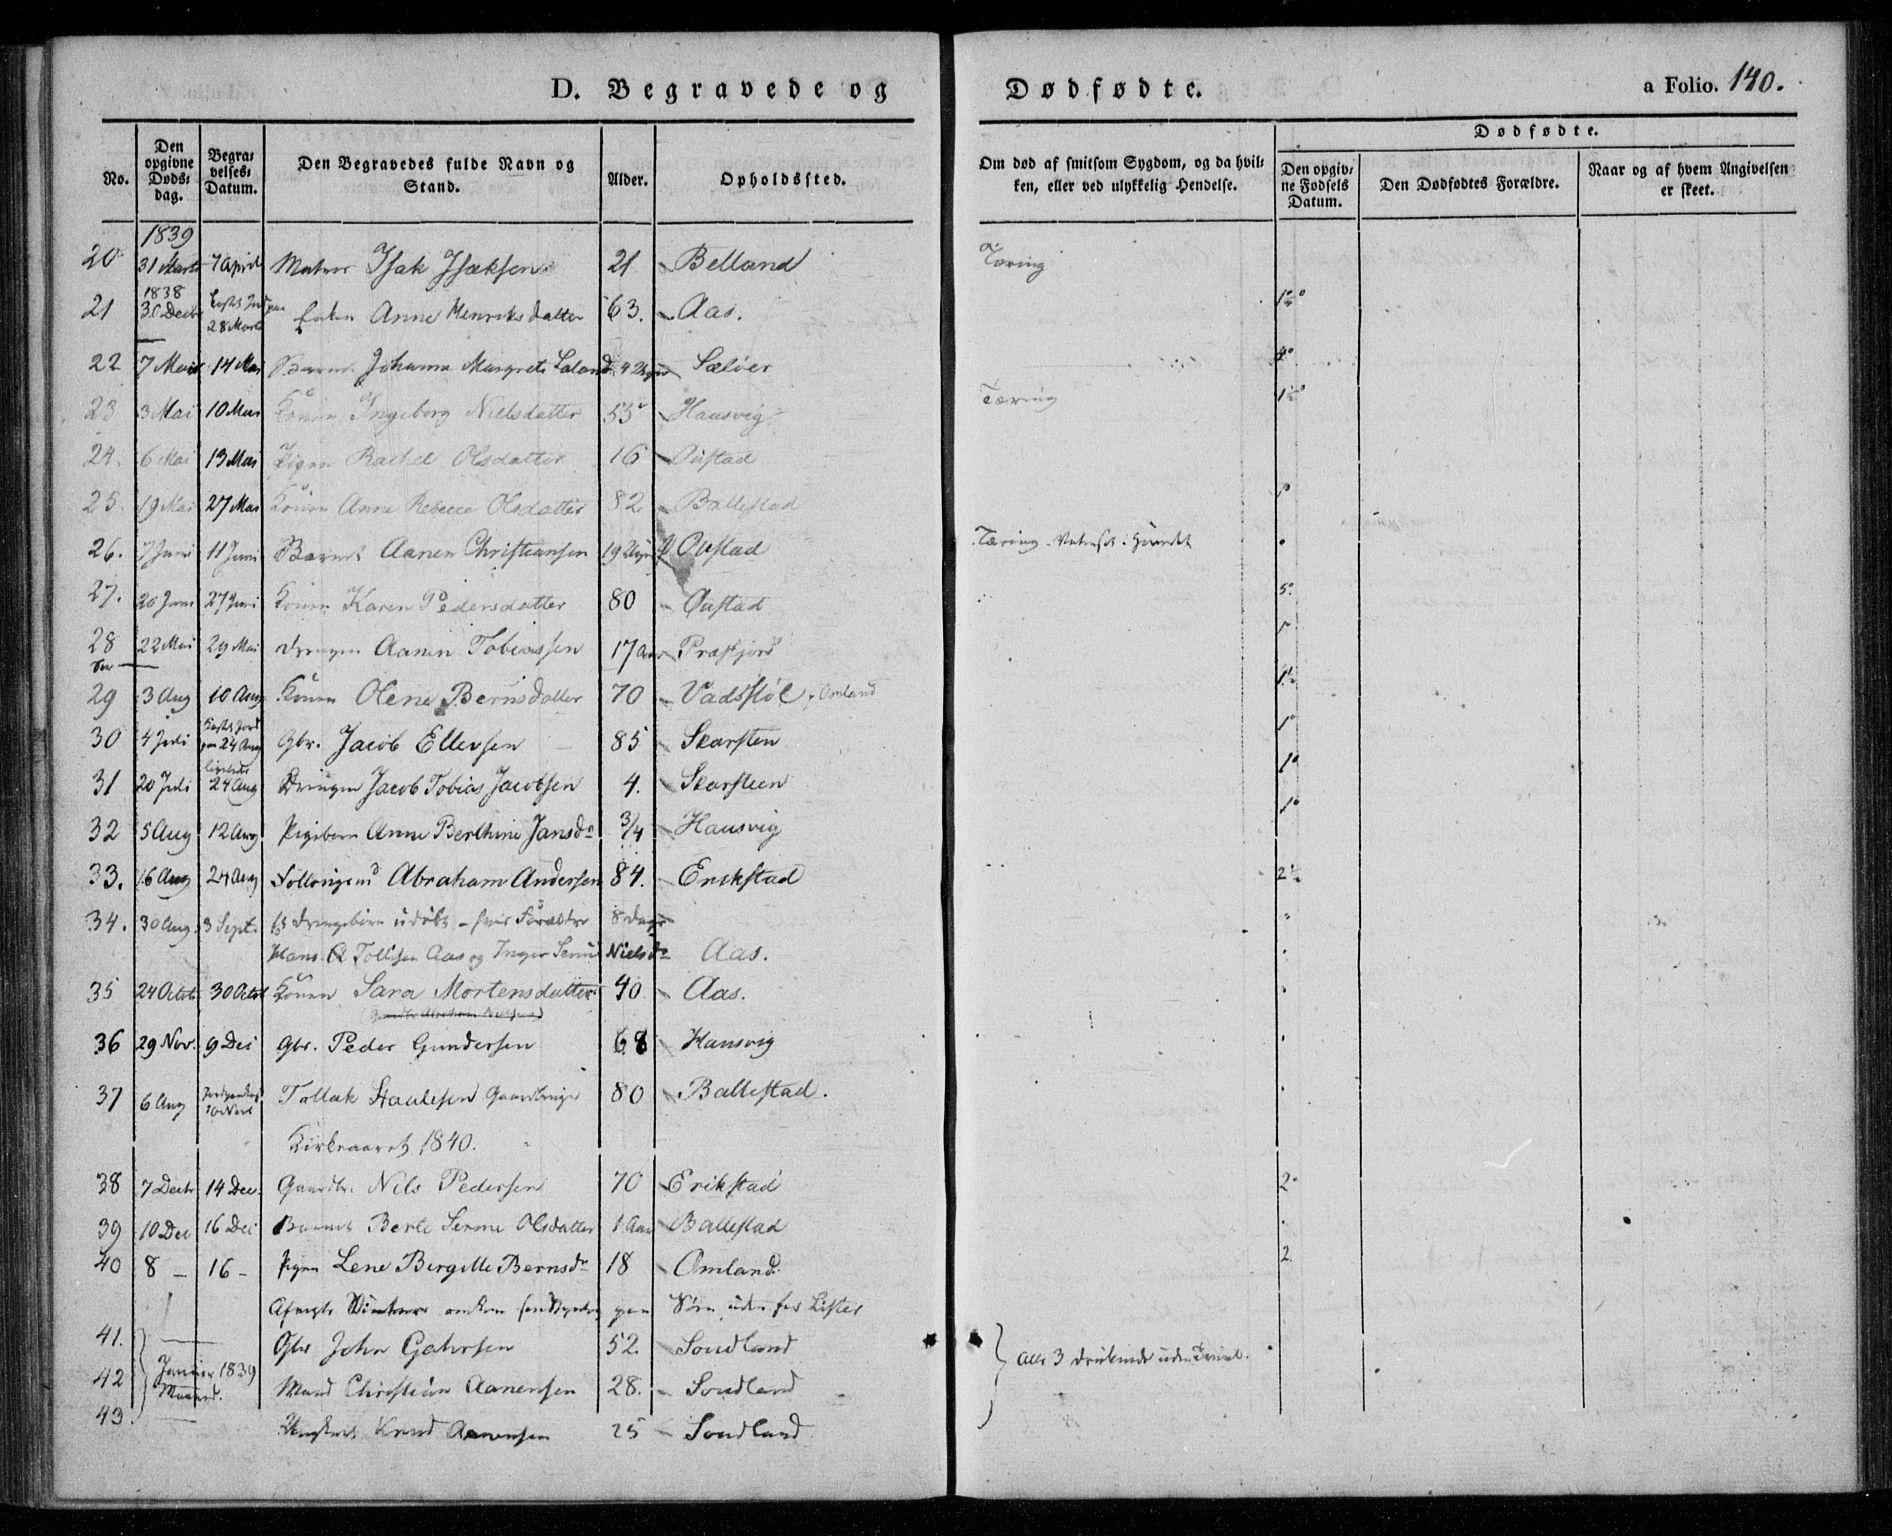 D. Begravede og Dødfødte. a Folio. 140.
No. Den opgivne Døds-dag. Begra-velses-Datum. Den Begravedes fulde Navn og Stand. Alder. Opholdssted. Om død af smitsom Sygdom, og da hvil-ken, eller ved ulykkelig Hendelse. Dødfødte. Den opgiv-ne Fødsels Datum. Den Dødfødtes Forældre. Naar og af hvem Angivelsen er skeet.
1839
20 31 Marts 7 April Isak Isaksen 21 Belland Tæring
1838
21 Decbr 28 Marts Anne Henriksdatter 63. Aas.
22 7 Mai 14 Mai Barnet Johanna Margrete 4 Uger Sæløer
23 3 Mai 10 Mai Konen Ingeborg Nielsdatter 55 Hausvig Tæring
24. 6 Mai 13 Mai Pigen Rachel Olsdatter 16
25. 19 Mai 27 Mai Konen Anna Rebecca Olsdatter 82 Ballestad
26. 7 Juni 11 Juni Barnet Aanen Christiansen 19 Uger Tæring
27. 20 Juni 27 Juni Konen Karen Pedersdatter 80
28 22 Mai 29 Mai Drengen Aanen Tobiassen 17 Aar
29 3 Aug 10 Aug Konen Olene Bernsdatter 70 Vadsstøl Omland
30 4 Juli 24 Aug Gbr. Jacob Ellevsen 85 Skarsten
31 20 Juli 24 Aug Drengen Jacob Tobias Jacobsen 4. Skarsteen
32 5 Aug 12 Aug Pigebarn Anne Berthine Jansd. 3/4 Hausvig
33. 16 Aug 24 Aug Abraham Andersen 84. Erikstad
34. 30 Aug. 3 Sept. Drengebarn udøbt - hvis Forældre 8 Dage
Hans Tollisen Aas og Inger Nielsd. Aas.
35 24 Octob 30 Octob Konen Sara Mortensdatter 40 Aas.
36 29 Nov. 9 Dec Gbr. Peder Gundersen 68 Hausvig
37 6 Aug Tollak Staalesen 80 Ballestad.
Kirkeaaret 1840.
38 7 Decbr 14 Dec. Gaardbr. Nils Pedersen 70 Erikstad
39 10 Dec 16 Dec Barnet Berte Serine Olsdatter 1 Aar Ballestad
40 8 - 16 - Pigen Lene Birgitte Bernsd. 18 Omland
Afvigte Vinter omkom paa Søen uden for Lister
41. Gbr John Gabrsen 52. Sondland
42 Januar 1839 Maaned. Mand Christian Aanensen 28. Sondland Alle 3 druknede
43. Knud Aanensen 25 Sondland